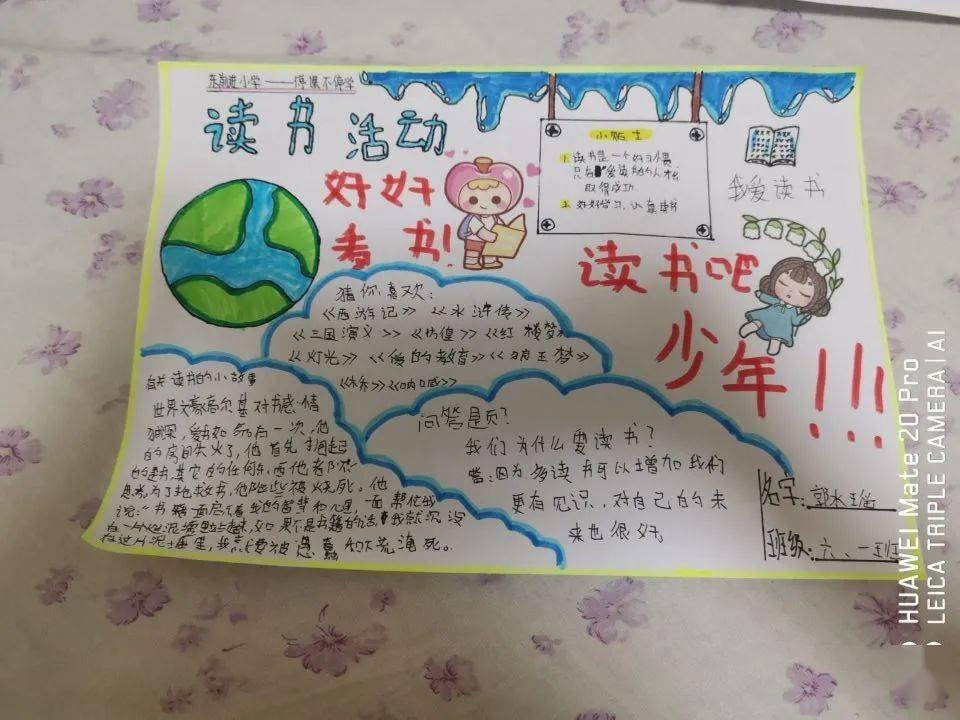 小学——停课不停学
读书活动
好好
看书!
小贴士
1. 读书是一个好习惯
只有爱读书的人才
取得成功
2. 好好学习,认真读书
我爱读书
读书吧
少年!!!
猜你喜欢:
《西游记》《水浒传》
《三国演义》《彷徨》《红楼梦》
《灯光》《爱的教育》《狼王梦》
《呐喊》
有关读书的小故事
世界文豪高尔基对书感情
独深,爱书如命有一次,他
的房间失火了,他首先抱起
的是书其它的任何东西他都不
考虑为了抢救书,他险些被烧死。他
说:"书籍一面启示着我的智慧和心灵,一面帮助我
在一片烂泥塘里站起来,如果不是书籍的话我就沉没
在这片泥塘里,我就要被愚蠢和下流淹死。
问答是页?
我们为什么要读书?
答:因为多读书可以增加我们
更有见识,对自己的未
来也很好
名字:郭水
班级:六、一班
HUAWEI Mate 20 Pro
LEICA TRIPLE CAMERA | AI